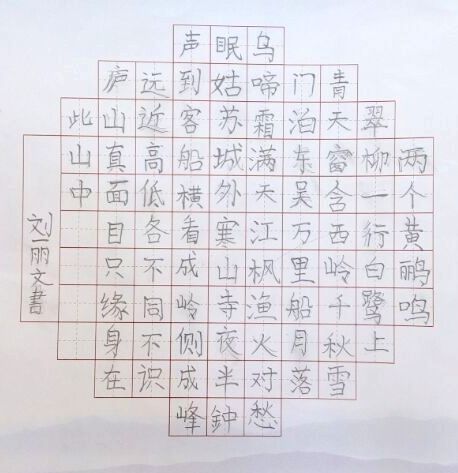 两个黄鹂鸣
翠柳一行白鹭上
青天窗含西岭千秋雪
门泊东吴万里船月落
乌啼霜满天江枫渔火对愁
眠姑苏城外寒山寺夜半鐘
声到客船横看成岭侧成峰
远近高低各不同不识
庐山真面目只缘身在
此山中
刘丽文書